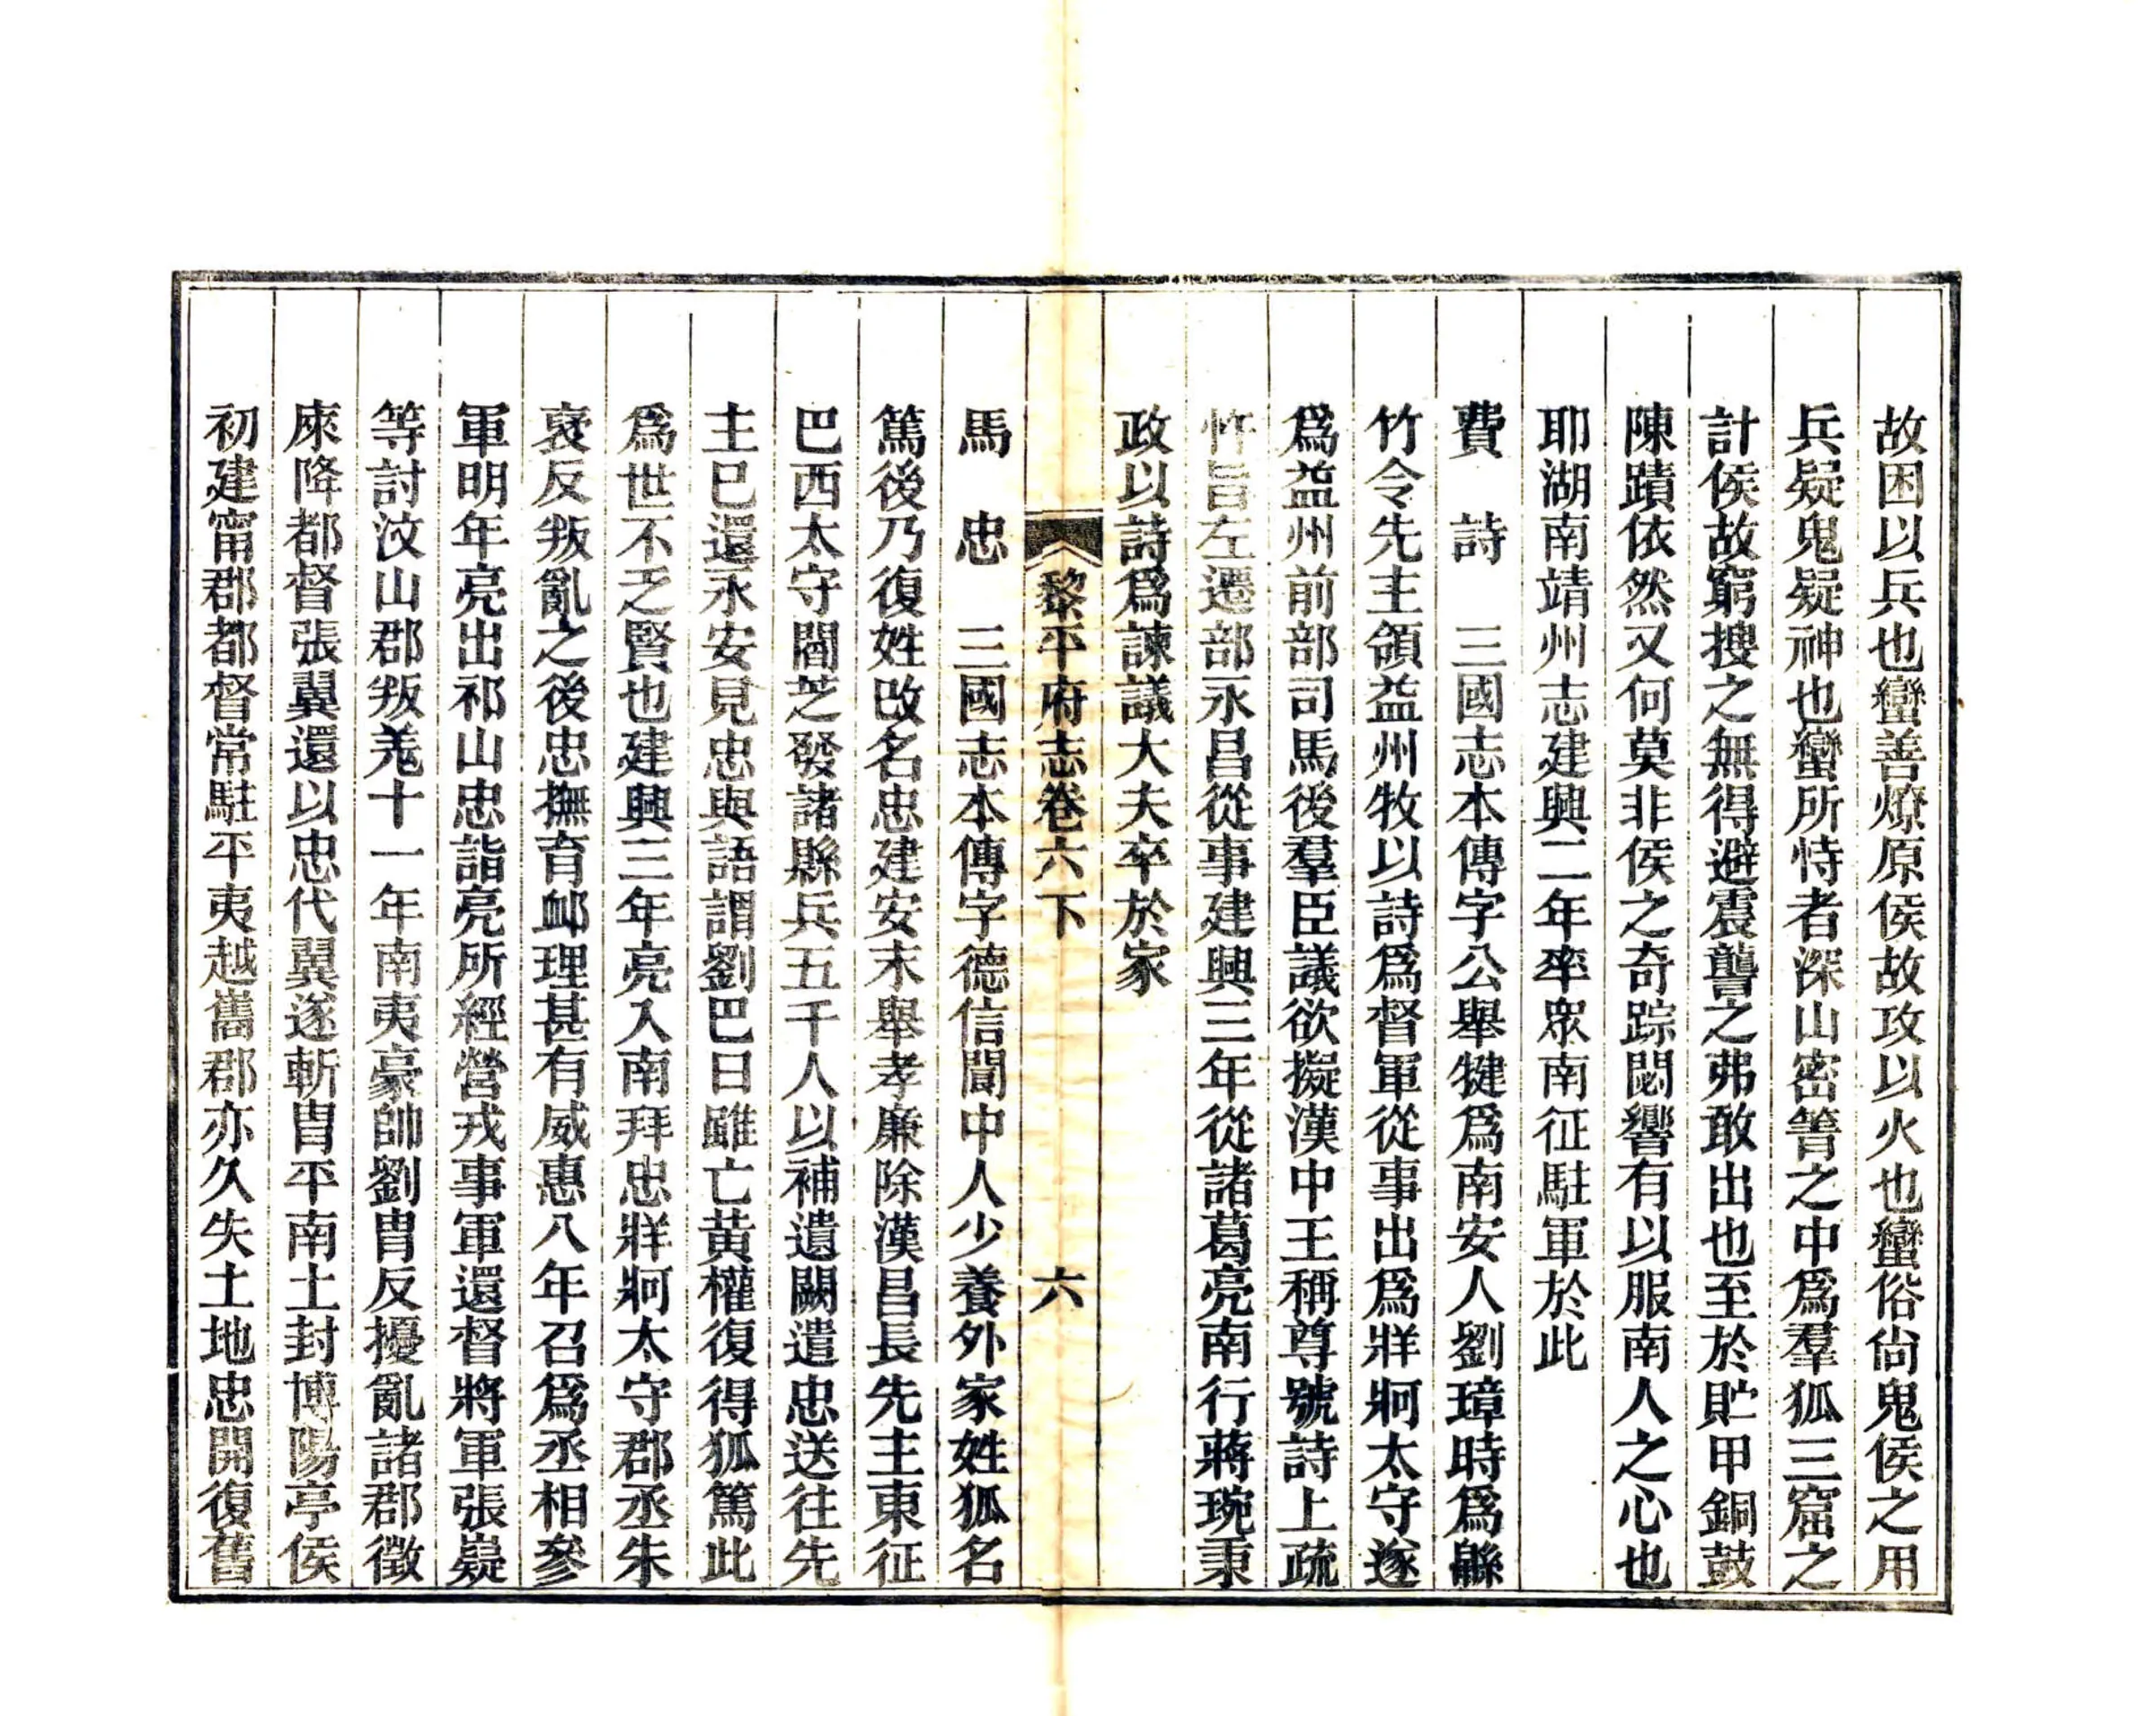 故困以兵也蠻善燎原侯故攻以火也蠻俗尙鬼侯之用
兵疑鬼疑神也蠻所恃者深山密箐之中爲羣狐三窟之
計侯故窮搜之無得避震讋之弗敢出也至於貯甲銅鼓
陳蹟依然又何莫非侯之奇踪閟響有以服南人之心也
耶湖南靖州志建興二年率眾南征駐軍於此
費　詩　三國志本傳字公舉犍爲南安人劉璋時爲緜
竹令先主領益州牧以詩爲督軍從事出爲牂牁太守遂
爲益州前部司馬後羣臣議欲擬漢中王稱尊號詩上疏
忤旨左遷部永昌從事建興三年從諸葛亮南行蔣琬秉
政以詩爲諫議大夫卒於家
黎平府志卷六下　六
馬　忠　三國志本傳字德信閬中人少養外家姓狐名
篤後乃復姓改名忠建安末舉孝廉除漢昌長先主東征
巴西太守閻芝發諸縣兵五千人以補遺闕遣忠送往先
主巳還永安見忠與語謂劉巴曰雖亡黃權復得狐篤此
爲世不乏賢也建興三年亮入南拜忠牂牁太守郡丞朱
褒反叛亂之後忠撫育卹理甚有威惠八年召爲丞相參
軍明年亮出祁山忠詣亮所經營戎事軍還督將軍張嶷
等討汶山郡叛羌十一年南夷豪帥劉胄反擾亂諸郡徵
庲降都督張翼還以忠代翼遂斬胄平南土封博陽亭侯
初建甯郡都督常駐平夷越巂郡亦久失土地忠開復舊